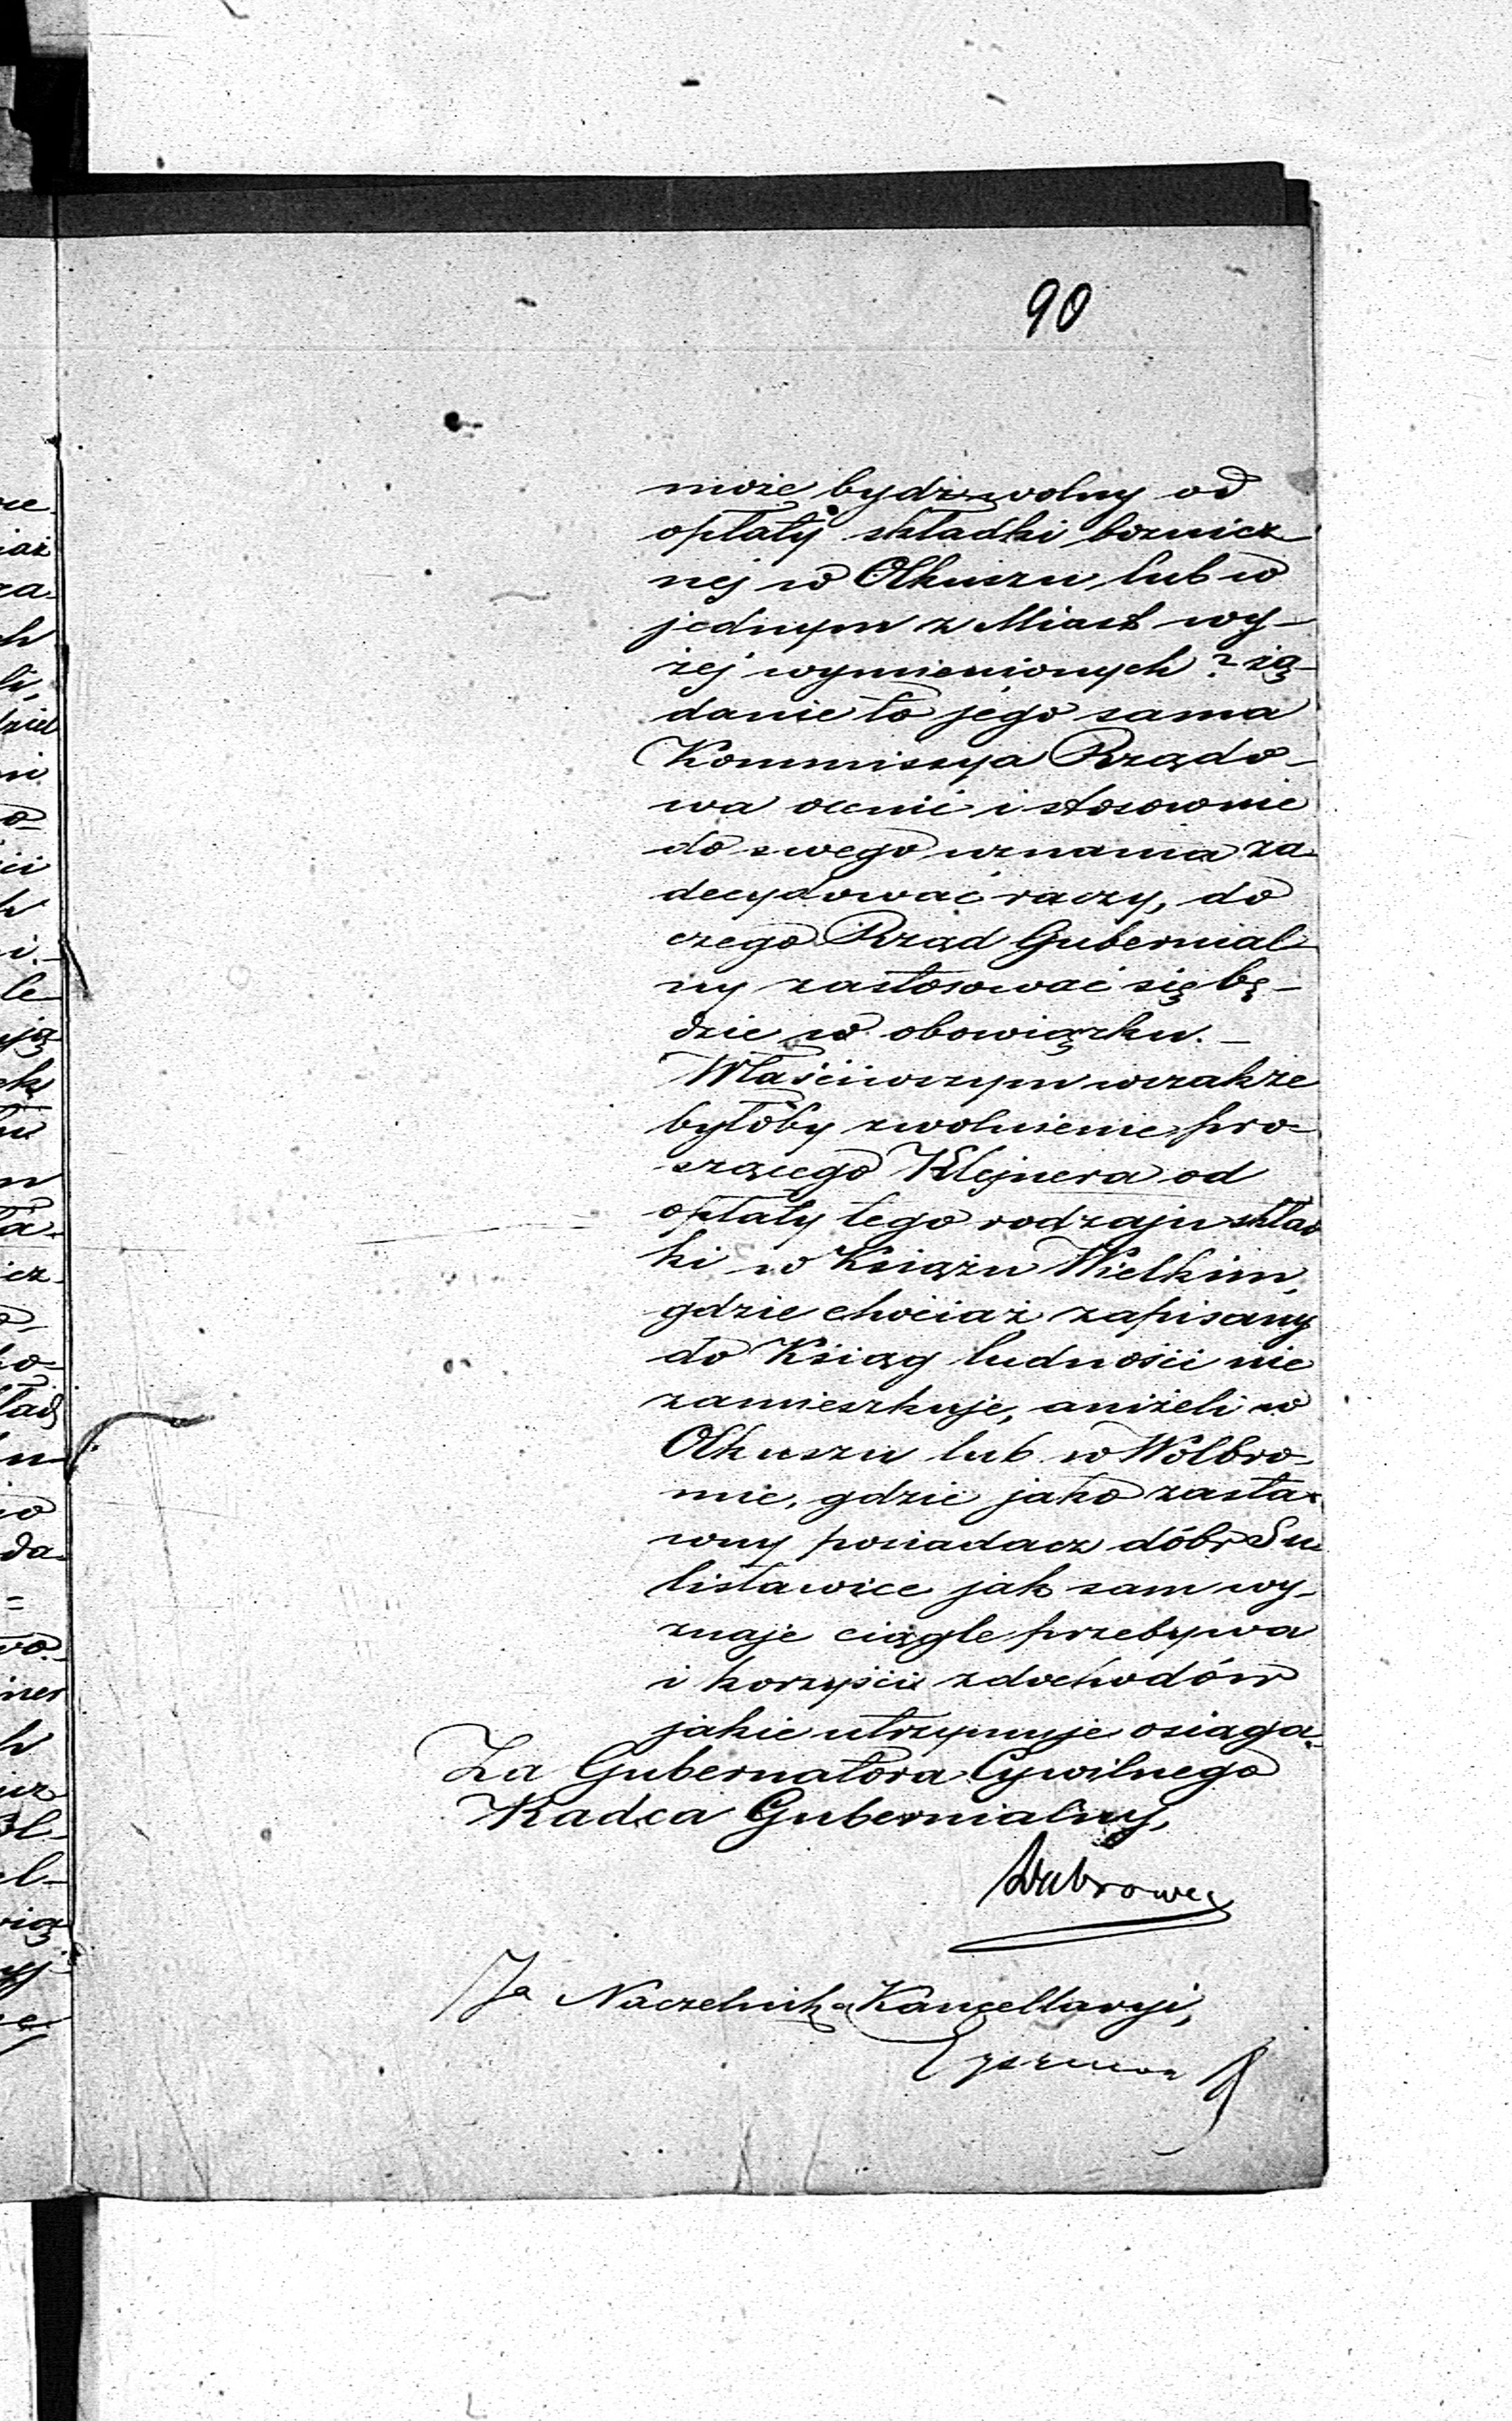 90
może bydź wolny od
opłaty składki bożnicz-
nej w Olkuszu, lub w
jednym z Miast wy-
żej wymienionych? żą-
danie to jego sama
Kommissya Rządo-
wa oceni i stosownie
do swego uznania za-
decydować raczy, do
czego Rząd Gubernial-
ny zastosować się bę-
dzie w obowiązku. -
Właściwszym wszakże
byłoby zwolnienie pro-
szącego Klejnera od
opłaty tego rodzaju skład
ki w Książu Wielkim,
gdzie chociaż zapisany
do Ksiąg ludności nie
zamieszkuje, aniżeli w
Olkuszu lub w Wolbro-
mie, gdzie jako zasta-
wny posiadacz dóbr Su-
lisławice jak sam wy-
znaje ciągle przebywa
i korzyści z dochodów
jakie utrzymuje osiąga.
Za Gubernatora Cywilnego
Radca Gubernialny,
Za Naczelnika Kancellaryi,